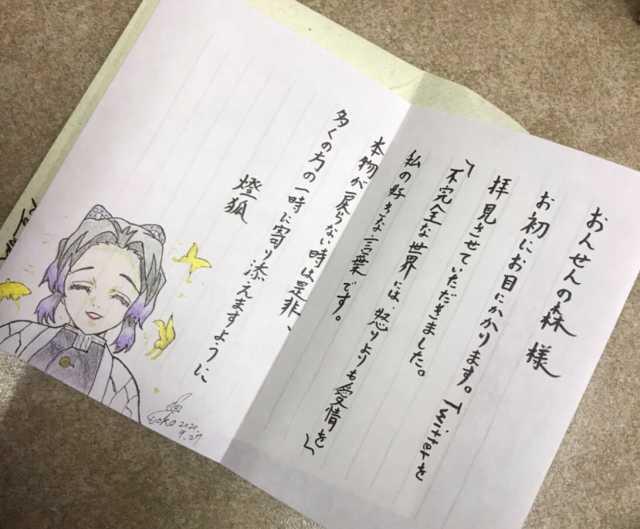 おんせんの森 様
お初にお目にかかります。Twitterを
拝見させていただきました。
「不完全な世界には、怒りよりも愛情を」
私の好きな言葉です。
本物が戻らない時は是非、
多くの方の一時に寄り添えますように
燈狐
2020.
9.27